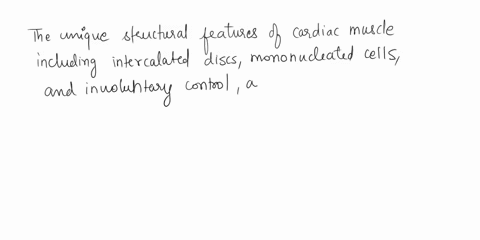 The unique structural features of cardiac muscle
including intercalated discs, mononucleated cells,
and involuntary control, a